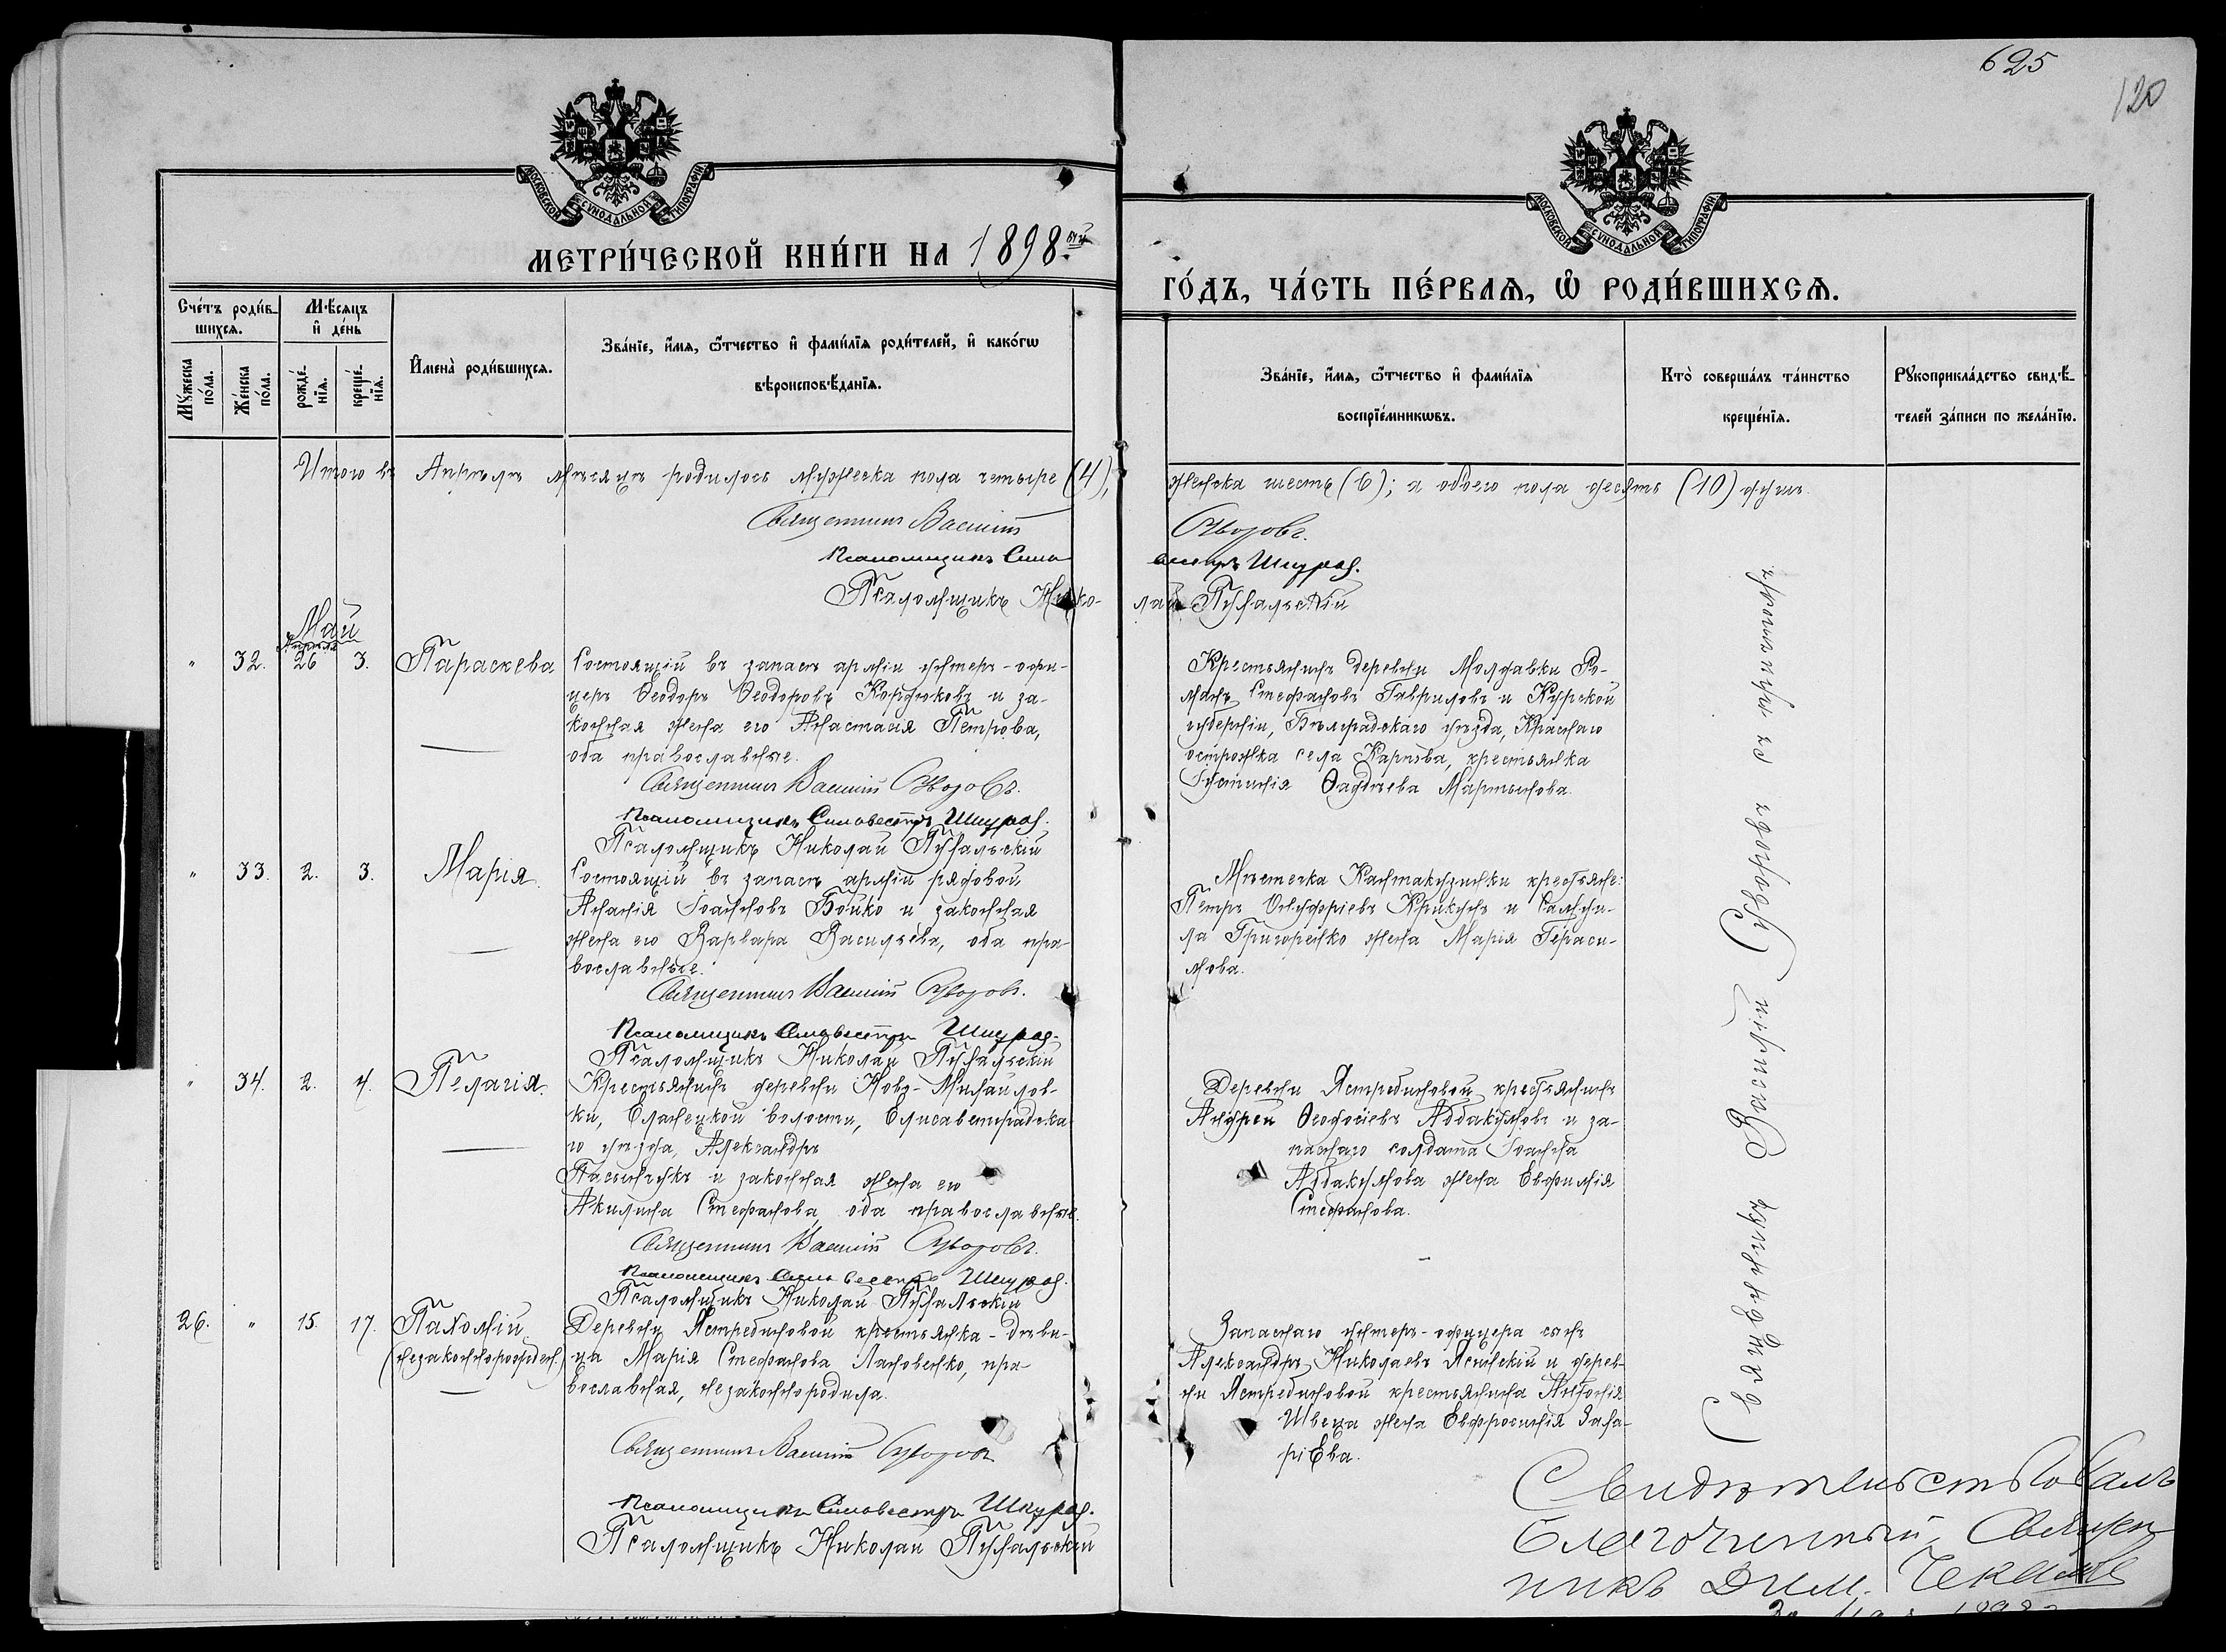 625
120
МОСКОВСКОЙ СѴНОДАЛЬНОЙ ТИПОГРАФІИ
МОСКОВСКОЙ СѴНОДАЛЬНОЙ ТИПОГРАФІИ
МЕТРИ́ЧЕСКОЙ КНИ́ГИ НА 1898ый
ГО́ДЪ, ЧА́СТЬ ПЕ́РВАѦ, Ѡ҆ РОДИ́ВШИХСѦ.
Сче́тъ роди́в-
шихсѧ.
Мꙋ́жеска по́ла.
Же́нска по́ла.
Мѣ́сѧцъ
и҆ де́нь
рожде́-
нїѧ.
креще́-
нїѧ.
И҆мена̀ роди́вшихсѧ.
Зва́нїе, и҆́мѧ, ѻ҆́тчество и҆ фами́лїѧ роди́телей, и҆ како́гѡ
вѣроисповѣ́данїѧ.
Зва́нїе, и҆́мѧ, ѻ҆́тчество и҆ фами́лїѧ
воспрїе́мникѡвъ.
Кто̀ соверша́лъ та́инство
креще́нїѧ.
Рꙋкоприкла́дство свидѣ́-
телей за́писи по жела́нїю.
Итого въ Апрѣлѣ мѣсяцѣ родилось мужеска пола четыре (4),
женска шесть (6); а обоего пола десять (10) душъ.
Священникъ Василій Суворовъ.
Псаломщикъ Сильвестръ Шкура.
Псаломщикъ Николай Пухальскій
Май
Апрѣля
" 32. 26 3. Параскева
Состоящій въ запасѣ арміи унтеръ-офи-
церъ Ѳеодоръ Ѳеодоровъ Кордюковъ и за-
конная жена его Анастасія Петрова,
оба православные.
Священникъ Василій Суворовъ.
Псаломщикъ Сильвестръ Шкура.
Псаломщикъ Николай Пухальскій
Крестьянинъ деревни Молдавки Ро-
манъ Стефановъ Гавриловъ и Курской
губерніи, Бѣлградскаго уѣзда, Краснаго
острожка села Карпова, крестьянка
Іустинія Ѳаддѣева Мартынова.
" 33. 2. 3. Марія.
Состоящій въ запасѣ арміи рядовой
Ананія Іоанновъ Бойко и законная
жена его Варвара Васильева, оба пра-
вославные.
Священникъ Василій Суворовъ.
Псаломщикъ Сильвестръ Шкура.
Псаломщикъ Николай Пухальскій
Мѣстечка Кантакузинки крестьяне:
Петръ Онуфріевъ Крикунъ и Самуи-
ла Григоренко жена Марія Гераси-
мова.
" 34. 2. 4. Пелагія.
Крестьянинъ деревни Ново-Михайлов-
ки, Еланецкой волости, Елисаветградска-
го уѣзда, Александръ
Пасынчукъ и законная жена его
Акилина Стефанова, оба православные.
Священникъ Василій Суворовъ.
Псаломщикъ Сильвестръ Шкура.
Псаломщикъ Николай Пухальскій
Деревни Ястребиновой крестьянинъ
Андрей Ѳеодосіевъ Аббакумовъ и за-
паснаго солдата Іоанна
Аббакумова жена Евфимія
Стефанова.
26. " 15. 17. Пахомій
(незаконнорожден.)
Деревни Ястребиновой крестьянка-дѣви-
ца Марія Стефанова Лановенко, пра-
вославная, незаконнородила.
Священникъ Василій Суворовъ
Псаломщикъ Сильвестръ Шкура.
Псаломщикъ Николай Пухальскій
Запаснаго унтеръ-офицера сынъ
Александръ Николаевъ Ясинскій и дерев-
ни Ястребиновой крестьянина Антонія
Швеца жена Евфросинія Заха-
ріева.
Священникъ Василій Суворовъ съ причтомъ
Свидѣтельствовалъ
Благочинный, Священ-
никъ Дим.